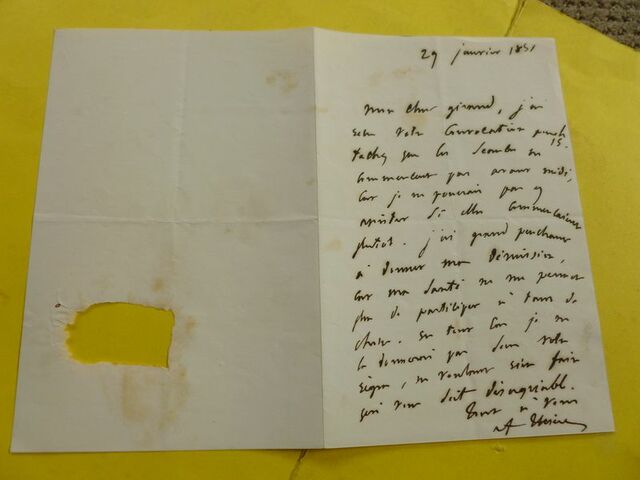 29 janvier 1851
Mon cher girard, j'ai
reçu votre convocation pour le 15.
tachez que les séances ne
commencent pas avant midi,
car je ne pourrais pas y
assister si elles commençaient
plutot. j'ai grand penchant
à donner ma démission,
car ma santé ne me permet
plus de participer à tant de
choses. En tout cas je ne
la donnerai pas sans votre
, ne voulant rien faire
qui vous soit désagréable.
Tout à vous
A Thiers